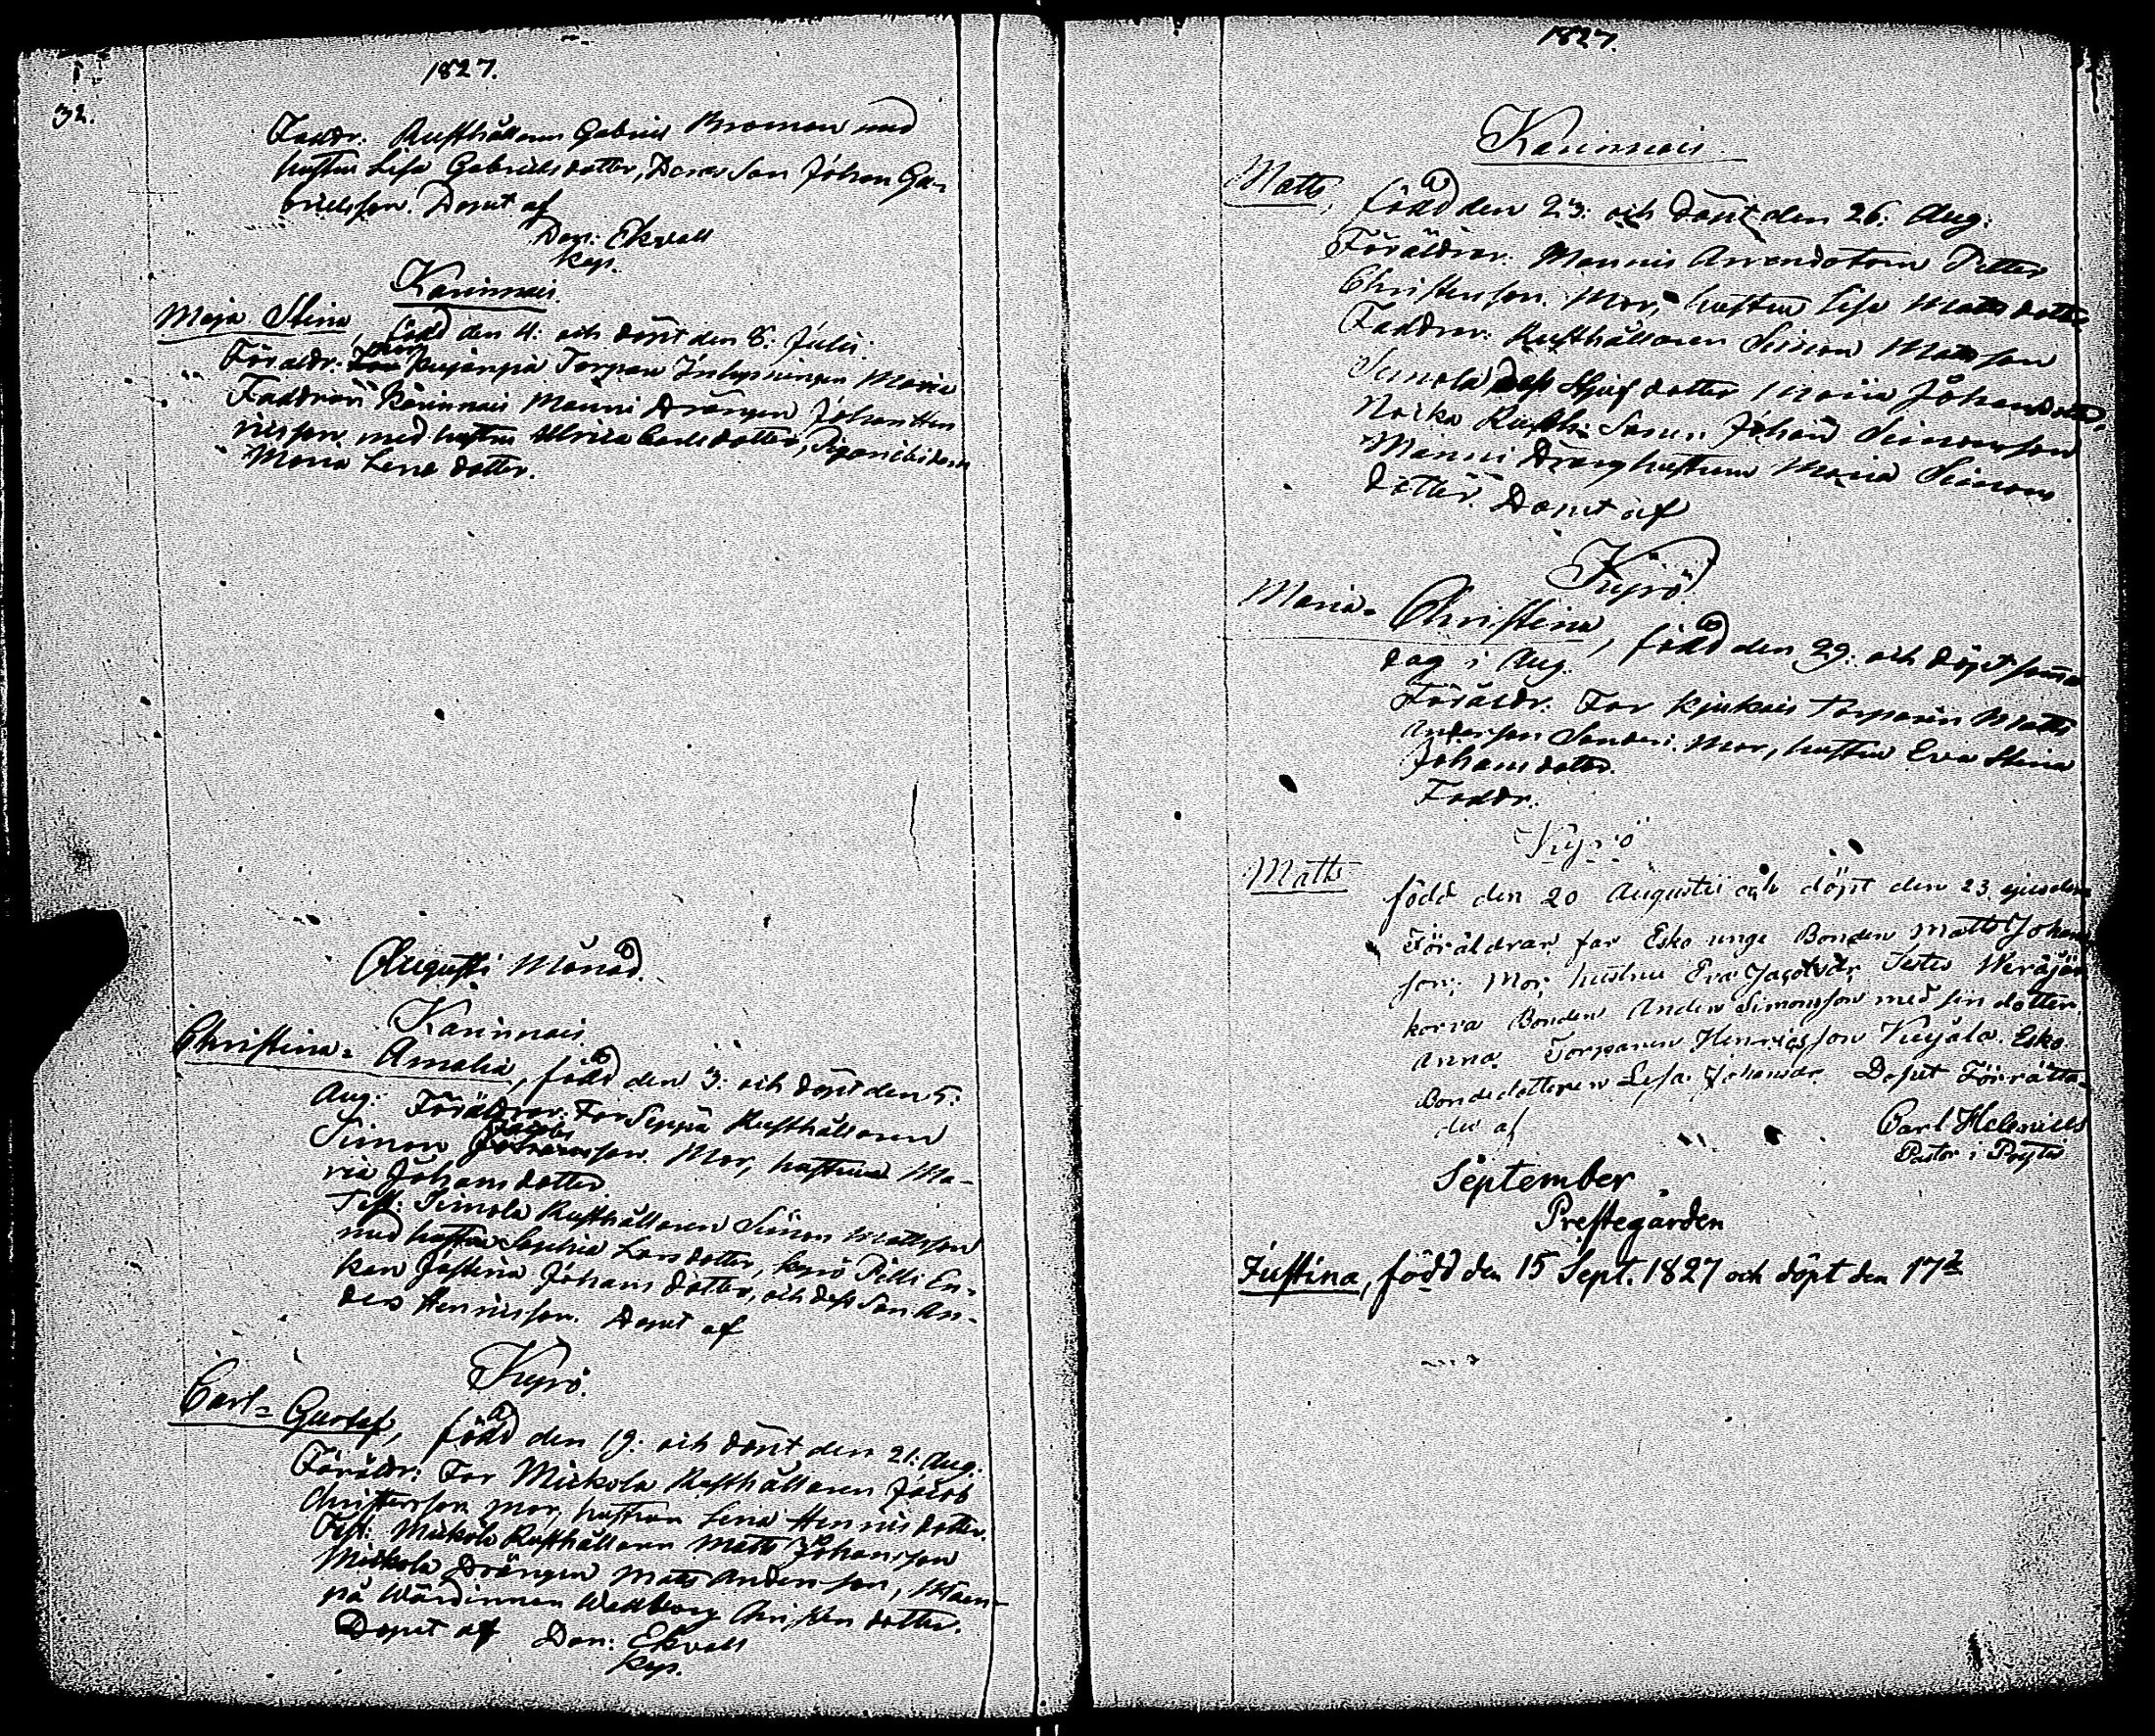 1827.
32.
Faddr: Rusthållaren Gabriel Broman med
hustru Lisa Gabrielsdotter, Deras Son Johan Ga-
brielsson. Döpnt af
Dan: Ekvall
Kap.
Karinnais.
Maja Stina, född den 4: och döpt den 8. Julii.
Föräldr: mor Torpare Inhysningen Maria
Faddrar Karinnais Manni Drängen Johan Hen
ricsson med hustru Ulrica Carlsdotter, Pigan
Maria Lena dotter.
Augusti Månad.
Karinnais
Christina= Amalia, född den 3: och döpt den 5:
Aug: Föräldrar: Far Seppä Rusthållaren
Simon Jacobsson. Mor, hustrun Ma-
ria Johansdotter
Test: Simola Rusthållaren Simon Mattsson
med hustru Sophia Larsdotter, Kyrö Pilli En-
kan Justina Johans dotter, och dess Son An-
ders Henricsson. Döpnt af
Kyrö.
Carl= Gustaf, född den 19: och döpt den 21: Aug:
Föräldr: Far Mickola Rusthållaren Jacob
Christersson mor, hustrun Lena Henricsdotter.
Test: Mickola Rusthållaren Matts Johansson
Mickola Drängen Matts Andersson,
på Wärdinnan Wallborg Christersdotter.
Döpnt af Dan: Ekvall
Kap.
1827.
Karinnais
Matts, född den 23: och döpt den 26: Aug:
Föräldrar: Mannis Arrendatorn Petter
Christersson. Mor, hustru Lisa Matts dotter
Faddrar: Rusthållaren Simon Matsson
Simola dess dotter Maria Johansdotter,
Rusth: Sonen Johan Simonsson
Manni Dränghustrun Maria Simons
dotter. Döpnt af
Kyrö
Maria= Christina, född den 29: och döpt samma
dag i Aug.
Föräldr: Far Kjukais torparen Matts
Andersson Sonderi. Mor, hustru Eva Stina
Johansdotter.
Faddr:
Kyrö
Matts född den 20 Augusti och döpt den 23 ejusdem
Föräldrar far Esko unge Bonden Matts Johans
son; Mor, hustru Eva Jacobsdr, Testes
korva Bonden Anders Simonsson med sin dotter
Anna. Torparen Henricsson Kujala. Esko
Bondedotteren Lisa Johansdr. Dopet Förrätta-
des af
Carl Helenius
Pastor i Pöytis
September
Prestegården
Justina, född den 15 Sept. 1827 och döpt den 17de